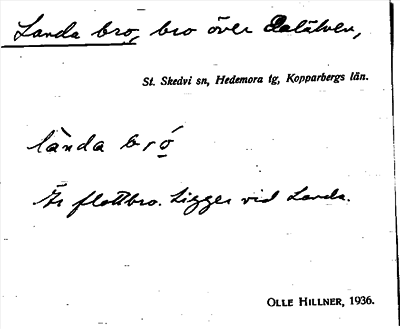 Landa bro, bro över Dalälven,
St. Skedvi sn, Hedemora tg, Kopparbergs län.
lànda bró̱
Är flottbro. Ligger vid Landa.
OLLE HILLNER, 1936.